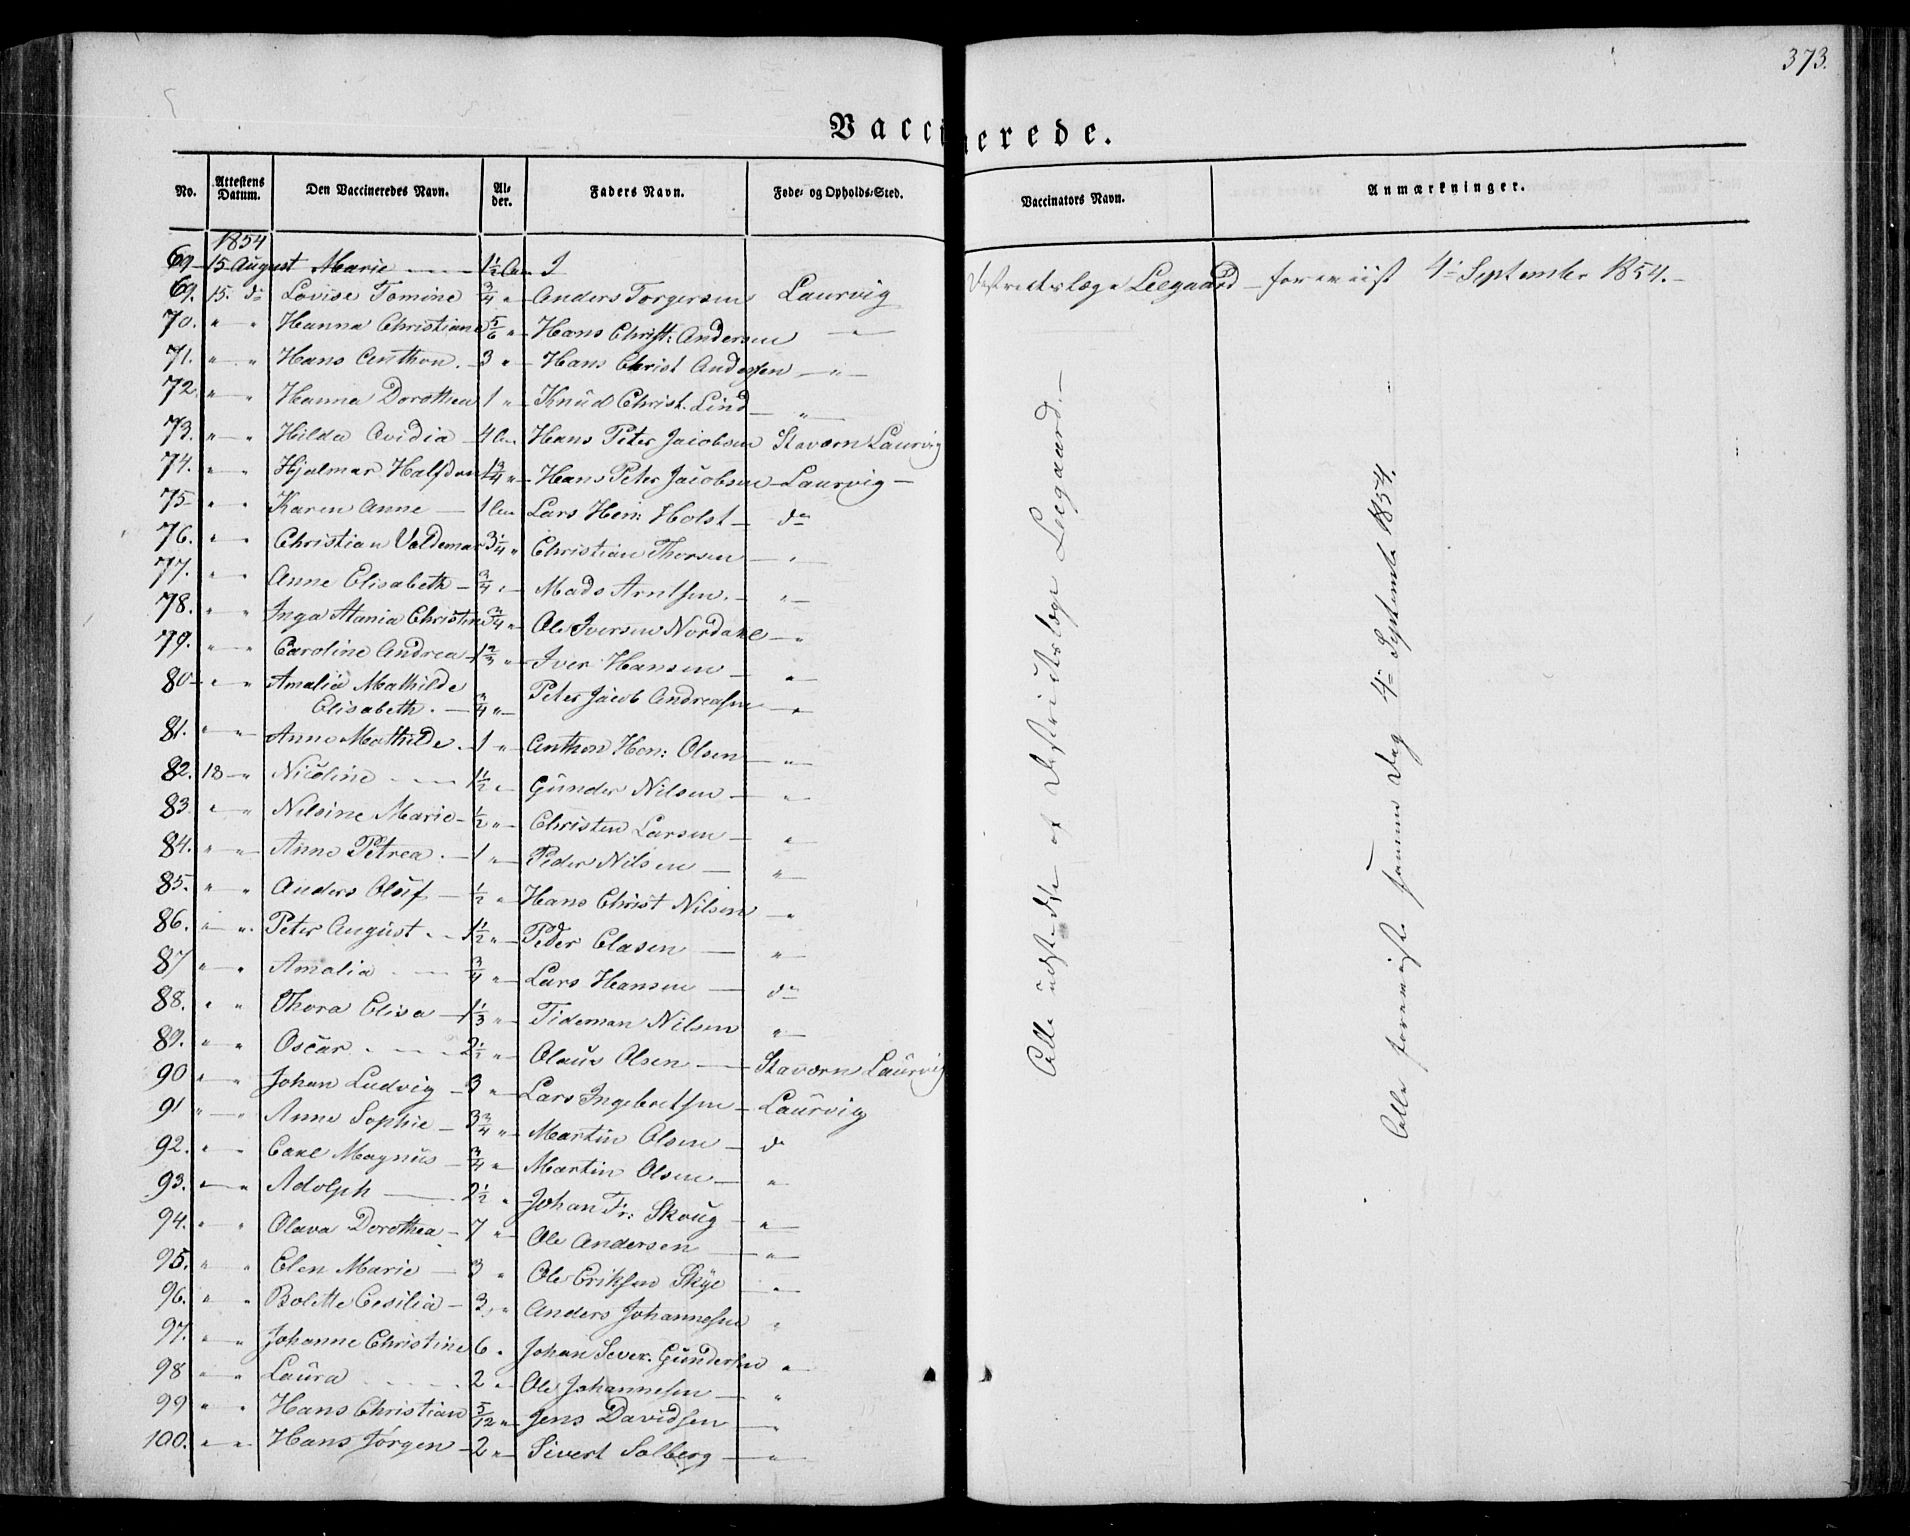 373.
Vaccinerede.
No. Attestens Datum. Den Vaccineredes Navn. Alder. Faders Navn. Føde- og Opholds-Sted. Vaccinators Navn. Anmærkninger.
1854
69 15 August Marie 1½
69. 15. do Lovise Tomine ¾ " Anders Torgersen Laurvig Districtslæge Leegaard – foreviist 4de September 1854.
70. " " Hanna Christiane 5/6 " Hans Christ: Andersen "
71. " " Hans Anthon. 3 " Hans Christ Andersen "
72. " " Hanna Dorothea 1 " Knud Christ. Lind "
73. " " Hilda Ovidia 4 Hans Peter Jacobsen Stavern Laurvig
74. " " Hjalmar Halfdan 1¾ " Hans Peter Jacobsen Laurvig
75 " " Karen Anne 1 Lars Hen: Holst do
76. " " Christian Valdemar 3¼ " Christian Thorsen "
77. " " Anne Elisabeth ¾ " Mads Arntsen. "
78. " " Inga Stania Christine ¾ " Ole Iversen Nordahl "
79. " " Caroline Andrea 1⅔ " Iver Hansen "
80 " " Amalia Mathilde
Elisabeth. ¾ " Peter Jacob Andreasen "
81. " " Anne Mathilde. 1 " Anthon Hen: Olsen "
82. 18 " Nicoline 1½ " Gunder Nilsen "
83 " " Nilsine Marie ½ " Christen Larsen "
84. " " Anne Petrea. 1 " Peder Nilsen "
85. " " Anders Oluf ½ " Hans Christ Nilsen "
86. " " Peter August. 1½ " Peder Clasen "
87 " " Amalia ¾ " Lars Hansen do
88. " " Thora Elisa 1⅓ " Tideman Nilsen "
89. " " Oscar 2½ " Olaus Olsen Stavern Laurvig
90 " " Johan Ludvig 3 " Lars Ingebretsen Laurvig
91 " " Anne Sophie 3¾ " Martin Olsen do
92. " " Carl Magnus ¾ " Martin Olsen "
93. " " Adolph 2½ " Johan Fr: Skoug "
94. " " Olava Dorothea 7 " Ole Andersen "
95. " " Elen Marie 3 " Ole Eriksen Skye "
96. " " Bolette Cesilia 3 " Anders Johannesen "
97. " " Johanne Christine 6 " Johan Sever. Gundersen "
98 " " Laura 2 " Ole Johannesen "
99 " " Hans Christian 5/12 " Jens Davidsen "
100. " " Hans Jørgen 2 " Sivert Solberg "
Alle udstedte af Districtslæge Leegaard.
Alle foreviiste samme Dag 4de September 1854.